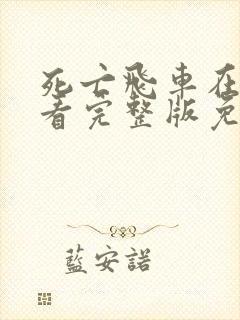 死亡飛車在
看完整版免
藍安諾